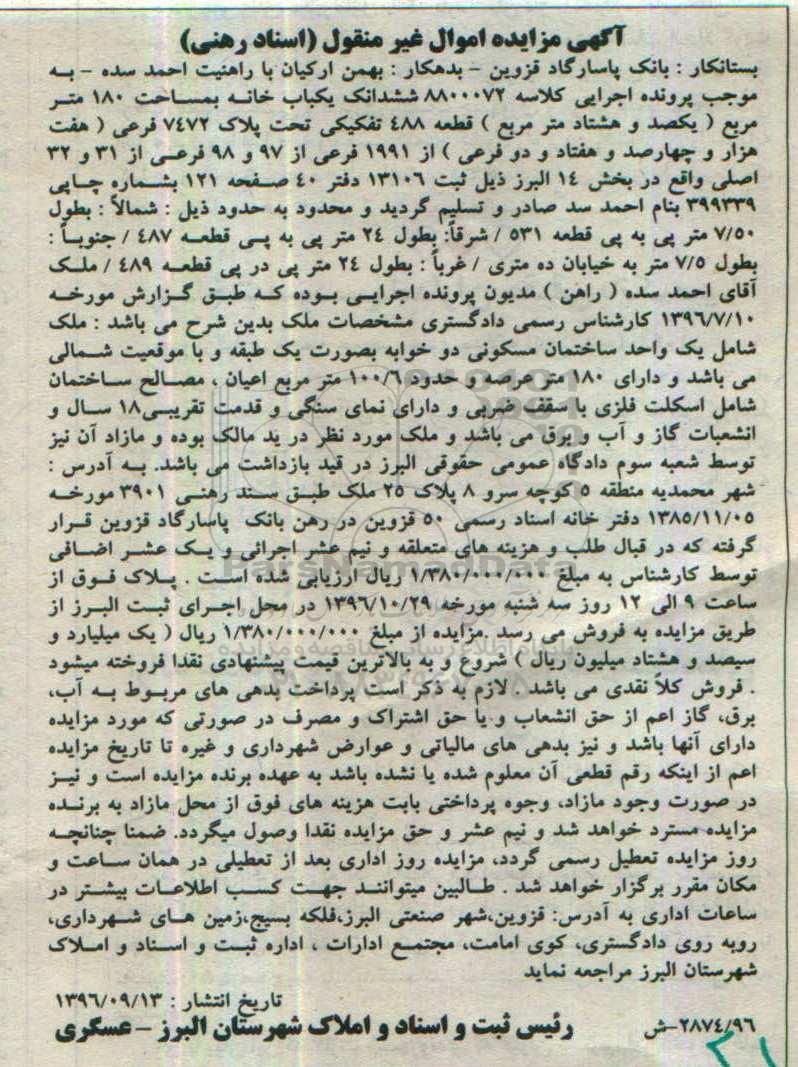 آگهی مزایده اموال غیر منقول (اسناد رهنی)
بستانکار : بانک پاسارگاد قزوین – بدهکار : بهمن ارکیان با راهنیت احمد سده – به
موجب پرونده اجرایی کلاسه ۸۸۰۰۰۷۲ ششدانک یکباب خانه بمساحت ۱۸۰ متر
مربع ( یکصد و هشتاد متر مربع ) قطعه ۴۸۸ تفکیکی تحت پلاک ۷۴۷۲ فرعی ( هفت
هزار و چهارصد و هفتاد و دو فرعی ) از ۱۹۹۱ فرعی از ۹۷ و ۹۸ فرعی از ۳۱ و ۳۲
اصلی واقع در بخش ۱۴ البرز ذیل ثبت ۱۳۱۰۶ دفتر ۴۰ صفحه ۱۲۱ بشماره چاپی
۳۹۹۳۳۹ بنام احمد سد صادر و تسلیم گردید و محدود به حدود ذیل : شمالاً : بطول
۷/۵۰ متر پی به پی قطعه ۵۳۱ / شرقاً: بطول ۲۴ متر پی به پی قطعه ۴۸۷ / جنوباً :
بطول ۷/۵ متر به خیابان ده متری / غرباً : بطول ۲۴ متر پی در پی قطعه ۴۸۹ / ملک
آقای احمد سده ( راهن ) مدیون پرونده اجرایی بوده که طبق گزارش مورخه
۱۳۹۶/۷/۱۰ کارشناس رسمی دادگستری مشخصات ملک بدین شرح می باشد : ملک
شامل یک واحد ساختمان مسکونی دو خوابه بصورت یک طبقه و با موقعیت شمالی
می باشد و دارای ۱۸۰ متر عرصه و حدود ۱۰۰/۶ متر مربع اعیان ، مصالح ساختمان
شامل اسکلت فلزی با سقف ضربی و دارای نمای سنگی و قدمت تقریبی۱۸ سال و
انشعبات گاز و آب و برق می باشد و ملک مورد نظر در ید مالک بوده و مازاد آن نیز
توسط شعبه سوم دادگاه عمومی حقوقی البرز در قید بازداشت می باشد. به آدرس :
شهر محمدیه منطقه ۵ کوچه سرو ۸ پلاک ۲۵ ملک طبق سند رهنی ۳۹۰۱ مورخه
۱۳۸۵/۱۱/۰۵ دفتر خانه اسناد رسمی ۵۰ قزوین در رهن بانک پاسارگاد قزوین قرار
گرفته که در قبال طلب و هزینه های متعلقه و نیم عشر اجرائی و یک عشر اضافی
توسط کارشناس به مبلغ ۱/۳۸۰/۰۰۰/۰۰۰ ریال ارزیابی شده است . پلاک فوق از
ساعت ۹ الی ۱۲ روز سه شنبه مورخه ۱۳۹۶/۱۰/۲۹ در محل اجرای ثبت البرز از
طریق مزایده به فروش می رسد .مزایده از مبلغ ۱/۳۸۰/۰۰۰/۰۰۰ ریال ( یک میلیارد و
سیصد و هشتاد میلیون ریال ) شروع و به بالاترین قیمت پیشنهادی نقدا فروخته میشود
. فروش کلاً نقدی می باشد . لازم به ذکر است پرداخت بدهی های مربوط به آب،
برق، گاز اعم از حق انشعاب و یا حق اشتراک و مصرف در صورتی که مورد مزایده
دارای آنها باشد و نیز بدهی های مالیاتی و عوارض شهرداری و غیره تا تاریخ مزایده
اعم از اینکه رقم قطعی آن معلوم شده یا نشده باشد به عهده برنده مزایده است و نیز
در صورت وجود مازاد، وجوه پرداختی بابت هزینه های فوق از محل مازاد به برنده
مزایده مسترد خواهد شد و نیم عشر و حق مزایده نقدا وصول میگردد. ضمنا چنانچه
روز مزایده تعطیل رسمی گردد، مزایده روز اداری بعد از تعطیلی در همان ساعت و
مکان مقرر برگزار خواهد شد . طالبین میتوانند جهت کسب اطلاعات بیشتر در
ساعات اداری به آدرس: قزوین،شهر صنعتی البرز،فلکه بسیج،زمین های شهرداری،
روبه روی دادگستری، کوی امامت، مجتمع ادارات ، اداره ثبت و اسناد و املاک
شهرستان البرز مراجعه نماید
تاریخ انتشار : ۱۳۹۶/۰۹/۱۳
۲۸۷۴/۹۶–ش رئیس ثبت و اسناد و املاک شهرستان البرز – عسگری
ParsNamadData